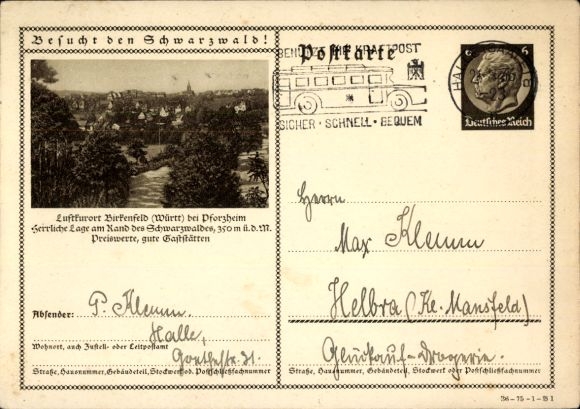 Besucht den Schwarzwald!
Luftkurort Birkenfeld (Württ) bei Pforzheim
Herrliche Lage am Rand des Schwarzwaldes, 350 m ü.d.M.
Preiswerte, gute Gaststätten
Absender: P. Klemm.
Halle,
Wohnort, auch Zustell- oder Leitpostamt
Goethestr. 31.
Straße, Hausnummer, Gebäudeteil, Stockwerk od. Postschließfachnummer
Postkarte
BENUTZT DIE KRAFTPOST
SICHER · SCHNELL · BEQUEM
6 6
Deutsches Reich
Herrn
Max Klemm
Helbra (Kr. Mansfeld)
Glückauf-Drogerie.
Straße, Hausnummer, Gebäudeteil, Stockwerk oder Postschließfachnummer
36-75-1-B1